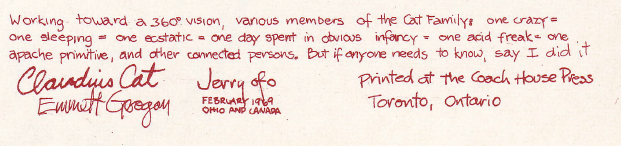 Working toward a 360° vision, various members of the Cat Family: one crazy =
one sleeping = one ecstatic = one day spent in obvious infancy = one acid freak = one
apache primitive, and other connected persons. But if anyone needs to know, say I did it
Claudius Cat
Emmett Grogan
Jerry ofo
FEBRUARY 1969
OHIO AND CANADA
Printed at The Coach House Press
Toronto, Ontario